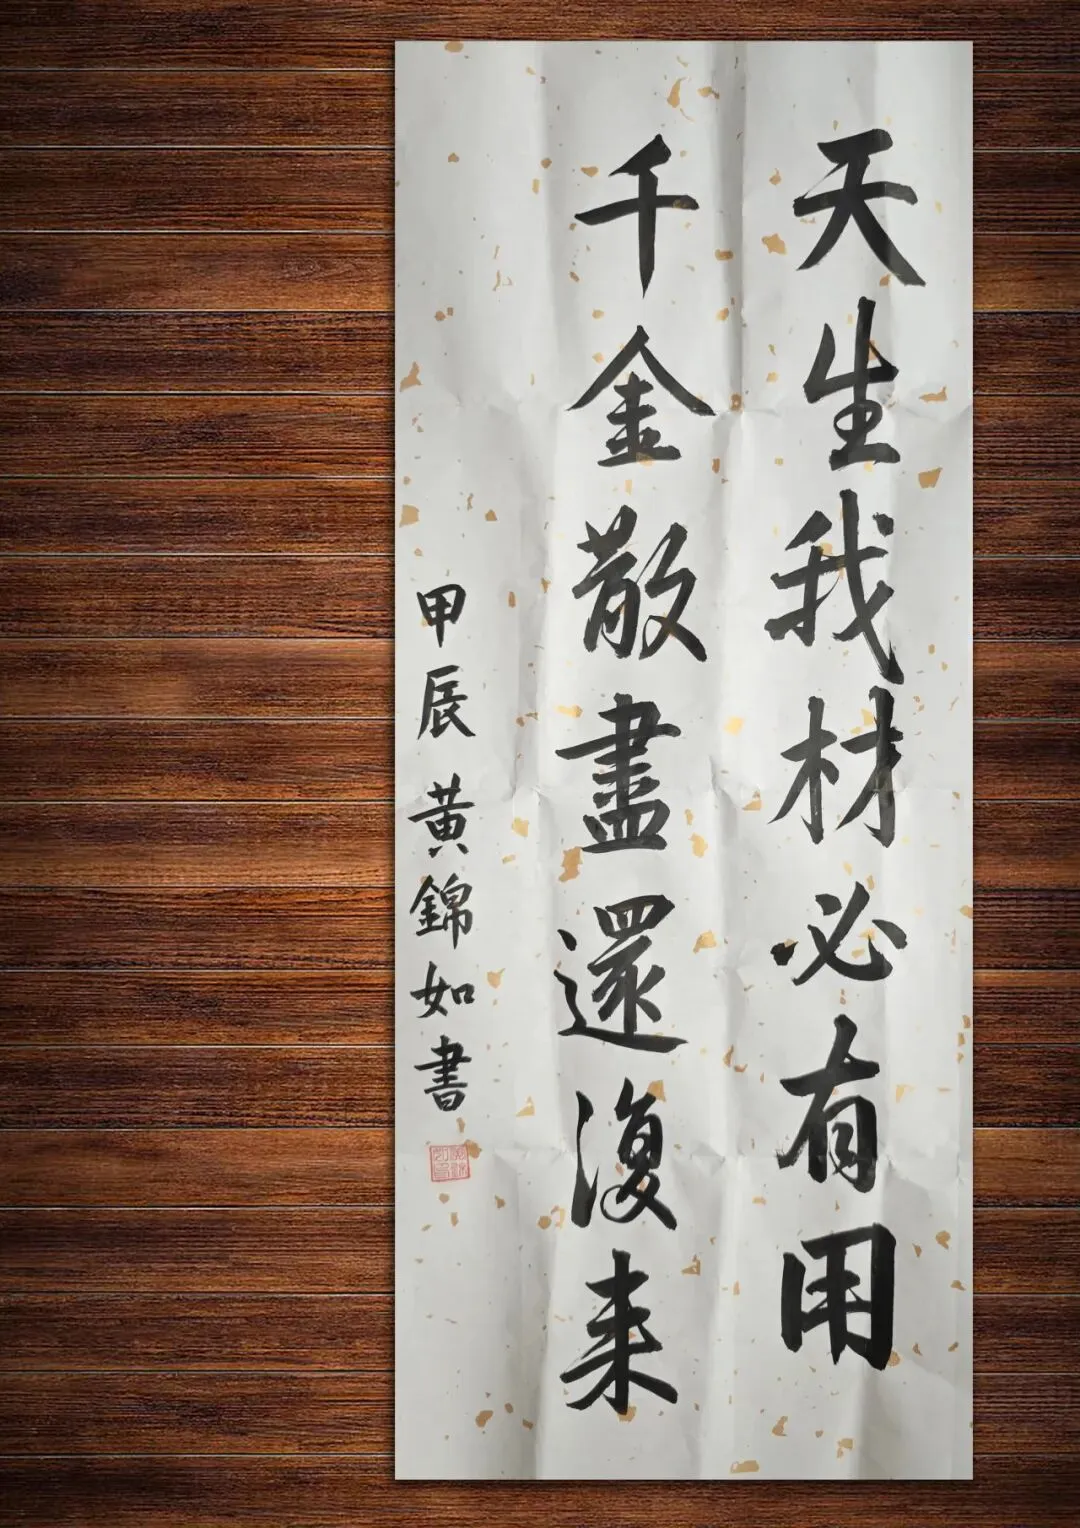 天生我材必有用
千金散盡還復来
甲辰黄錦如書